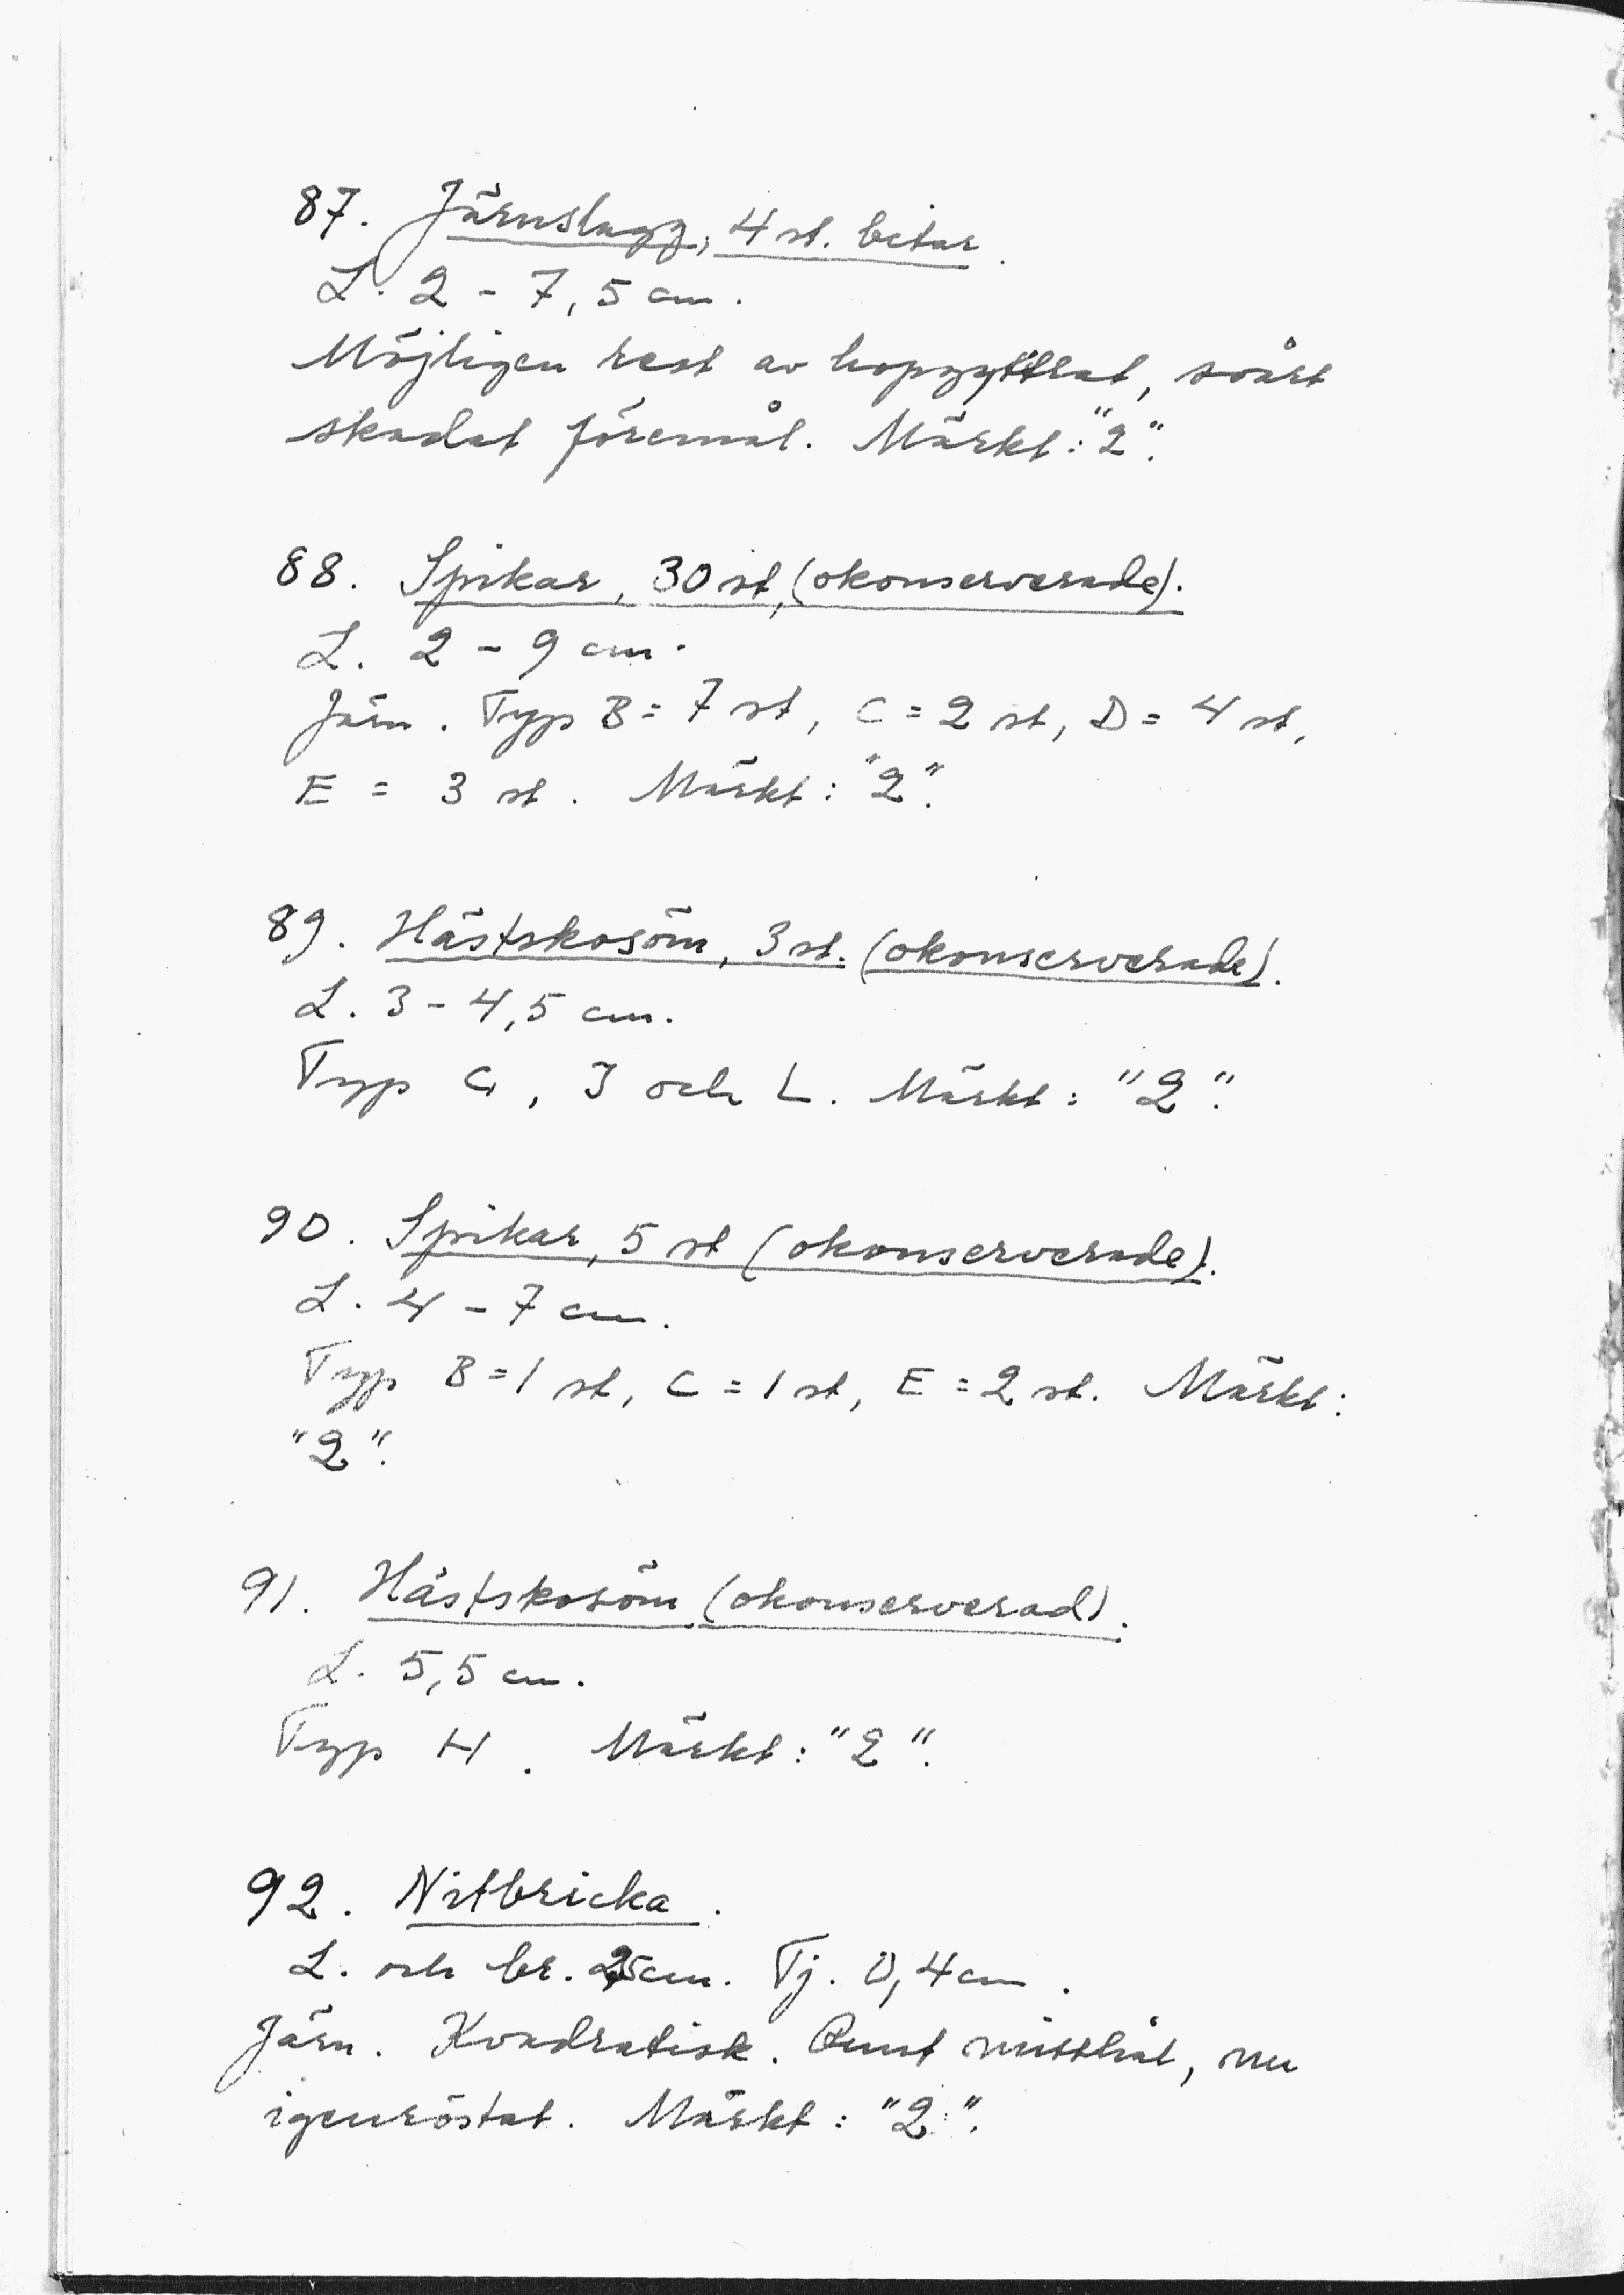 87. Järnslagg, 4 st. bitar.
L. 2 - 7,5 cm.
Möjligen rest av hopgyttrat, svårt
skadat föremål. Märkt: "2".
88. Spikar, 30 st, (okonserverade).
L. 2 - 9 cm.
Järn. Typ B = 7 st, C = 2 st, D = 4 st,
E = 3 st. Märkt: "2".
89. Hästskosöm, 3 st. (okonserverade).
L. 3 - 4,5 cm.
Typ G, J och L. Märkt: "2".
90. Spikar, 5 st (okonserverade).
L. 4 - 7 cm.
Typ B = 1 st, C = 1 st, E = 2 st. Märkt:
"2".
91. Hästskosöm (okonserverad).
L. 5,5 cm.
Typ H. Märkt: "2".
92. Nitbricka.
L. och br. 2,5 cm. Tj. 0,4 cm.
Järn. Kvadratisk. Runt mitthål, nu
igenrostat. Märkt: "2".